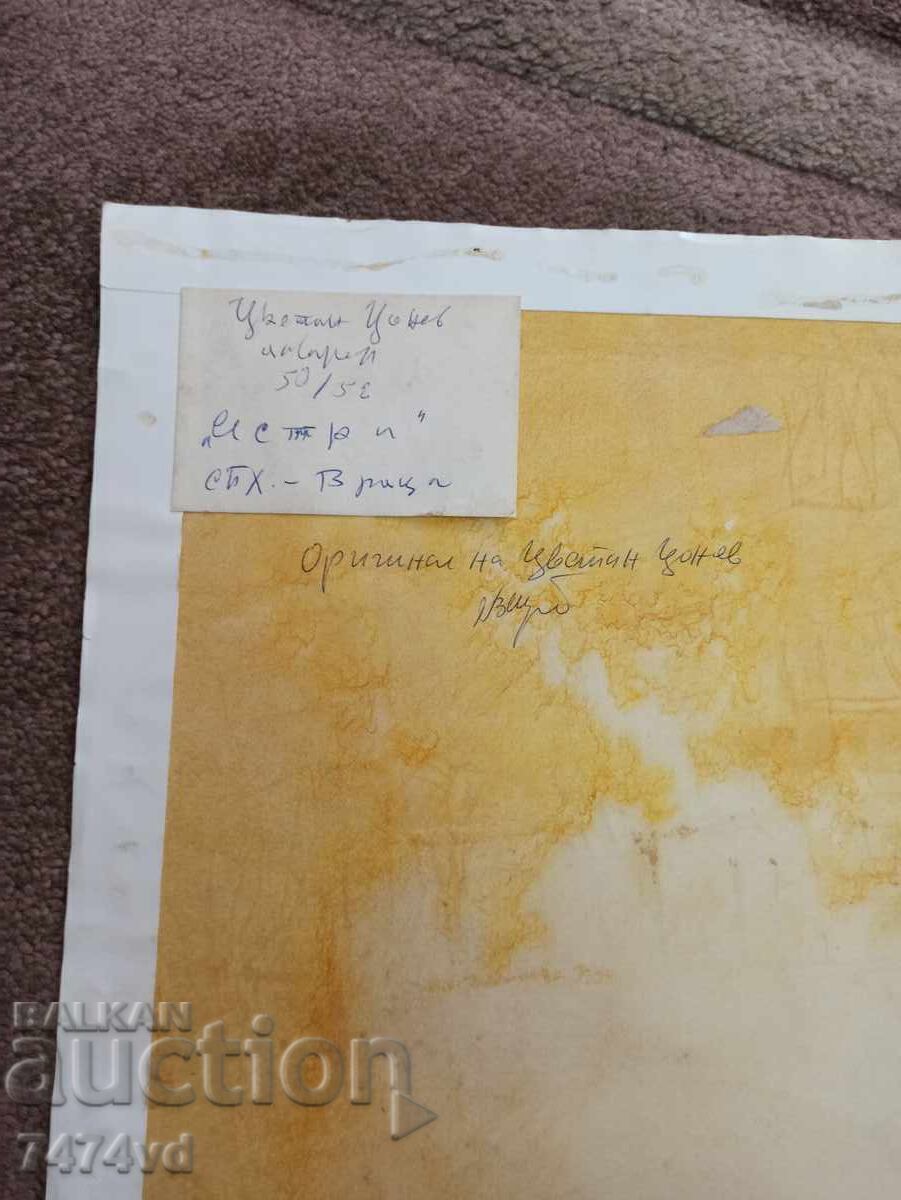 Цветан Цонев
акварел
50/52
„Истри"
СБХ. - Враца
Оригинал на Цветан Цонев
BALKAN
auction
7474vd